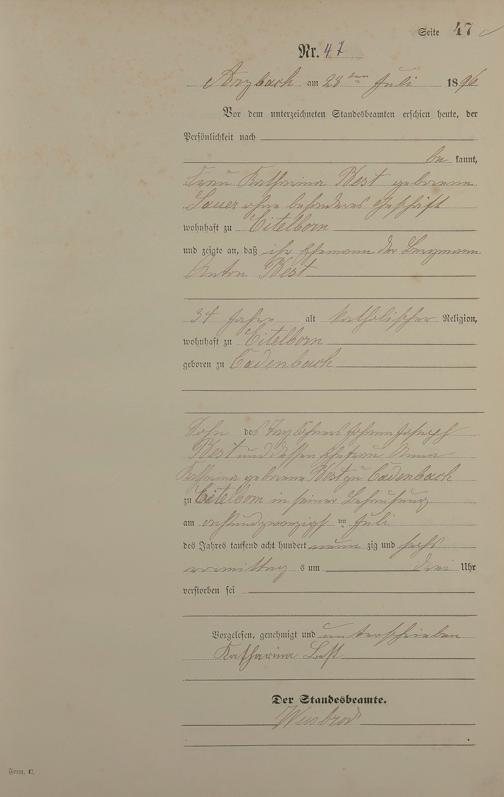 Seite 47
Nr. 47
Arzbach am 28ten Juli 1896
Vor dem unterzeichneten Standesbeamten erschien heute, der
Persönlichkeit nach
be kannt,
Frau Katharina West geborene
Sauer ohne besonderes Geschäft
wohnhaft zu Eitelborn
und zeigte an, daß ihr Ehemann der Bergmann
Anton West
34 Jahre alt katholischer Religion,
wohnhaft zu Eitelborn
geboren zu Cadenbach
Sohn des Tagelöhners Johann Joseph
West und dessen Ehefrau Anna
Katharina geborene West zu Cadenbach
zu Eitelborn in seiner Behausung
am achtundzwanzigsten Juli
des Jahres tausend acht hundert neun zig und sechs
vormittag s um drei Uhr
verstorben sei
Vorgelesen, genehmigt und unterschrieben
Katharina
Der Standesbeamte.
Form. C.